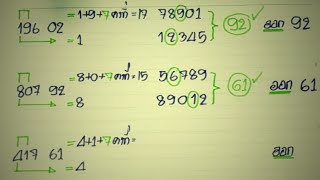 = 1+9+7 คงที่ = 17 78901
196 02 92 ✓ ออก 92
= 1 12345
= 8+0+7 คงที่ = 15 56789
807 92 61 ✓ ออก 61
= 8 89012
= 4+1+7 คงที่ =
417 61 ออก
= 4